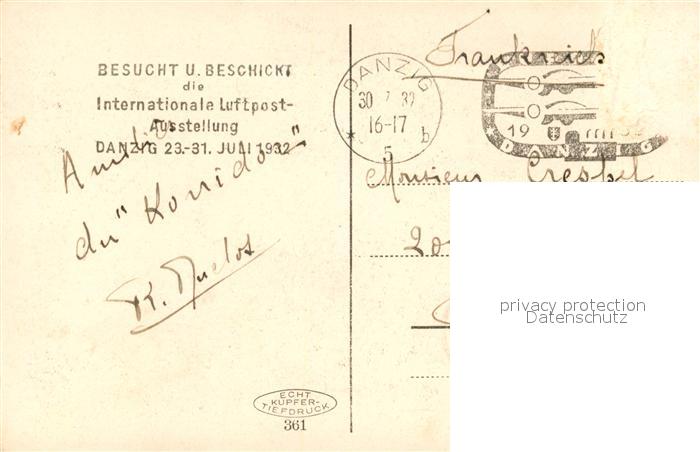 BESUCHT U. BESCHICKT
die
Internationale Luftpost-
Ausstellung
DANZIG 23.-31. JULI 1932
du "Korridor"
DANZIG
30 7 32
16-17
* b
5
Frankreich
19
DANZIG
Monsieur Crespel
20
privacy protection
Datenschutz
ECHT
KUPFER-
TIEFDRUCK
361